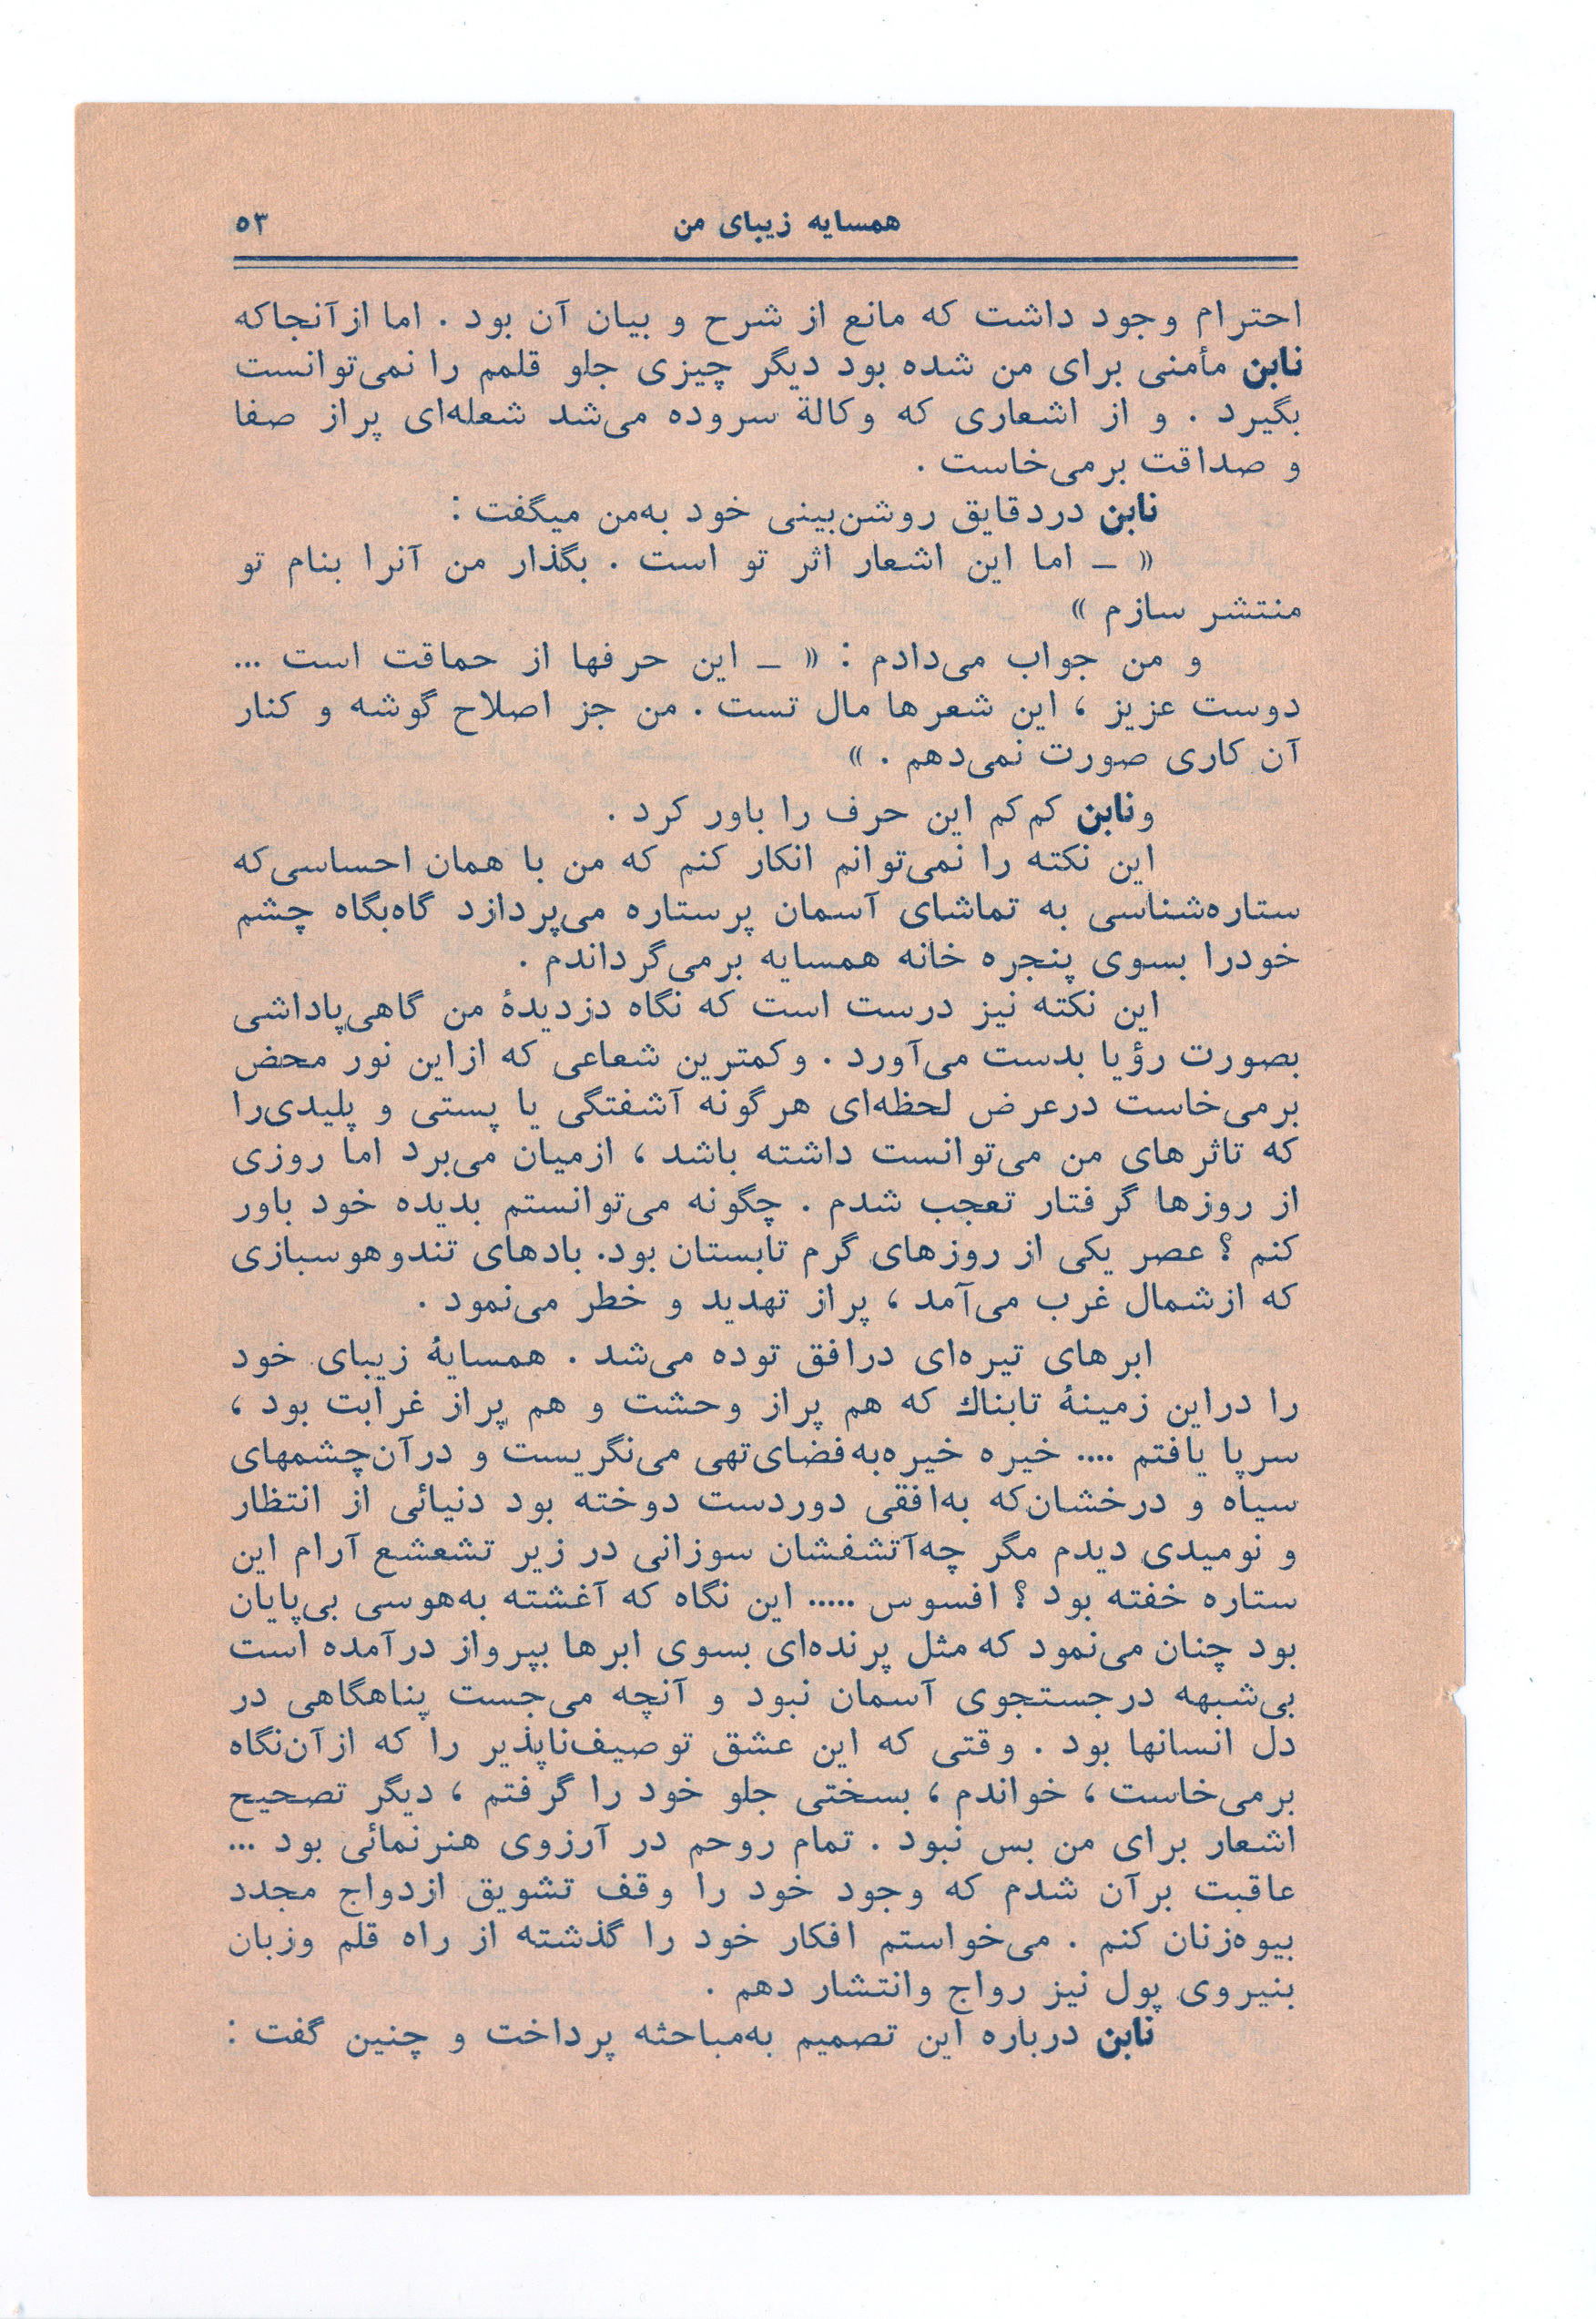 همسایه زیبای من
۵۳
احترام وجود داشت که مانع از شرح و بیان آن بود . اما ازآنجاکه
نابن مأمنی برای من شده بود دیگر چیزی جلو قلمم را نمی‌توانست
بگیرد . و از اشعاری که وکالة سروده می‌شد شعله‌ای پراز صفا
و صداقت برمی‌خاست .
نابن دردقایق روشن‌بینی خود به‌من میگفت :
« ــ اما این اشعار اثر تو است . بگذار من آنرا بنام تو
منتشر سازم »
و من جواب می‌دادم : « ــ این حرفها از حماقت است ...
دوست عزیز ، این شعرها مال تست . من جز اصلاح گوشه و کنار
آن کاری صورت نمی‌دهم . »
ونابن کم‌کم این حرف را باور کرد .
این نکته را نمی‌توانم انکار کنم که من با همان احساسی‌که
ستاره‌شناسی به تماشای آسمان پرستاره می‌پردازد گاه‌بگاه چشم
خودرا بسوی پنجره خانه همسایه برمی‌گرداندم .
این نکته نیز درست است که نگاه دزدیدهٔ من گاهی‌پاداشی
بصورت رؤیا بدست می‌آورد . وکمترین شعاعی که ازاین نور محض
برمی‌خاست درعرض لحظه‌ای هرگونه آشفتگی یا پستی و پلیدی‌را
که تاثرهای من می‌توانست داشته باشد ، ازمیان می‌برد اما روزی
از روزها گرفتار تعجب شدم . چگونه می‌توانستم بدیده خود باور
کنم ؟ عصر یکی از روزهای گرم تابستان بود. بادهای تندوهوسبازی
که ازشمال غرب می‌آمد ، پراز تهدید و خطر می‌نمود .
ابرهای تیره‌ای درافق توده می‌شد . همسایهٔ زیبای خود
را دراین زمینهٔ تابناك که هم پراز وحشت و هم پراز غرابت بود ،
سرپا یافتم .... خیره خیره‌به‌فضای‌تهی می‌نگریست و درآن‌چشمهای
سیاه و درخشان‌که به‌افقی دوردست دوخته بود دنیائی از انتظار
و نومیدی دیدم مگر چه‌آتشفشان سوزانی در زیر تشعشع آرام این
ستاره خفته بود ؟ افسوس ..... این نگاه که آغشته به‌هوسی بی‌پایان
بود چنان می‌نمود که مثل پرنده‌ای بسوی ابرها بپرواز درآمده است
بی‌شبهه درجستجوی آسمان نبود و آنچه می‌جست پناهگاهی در
دل انسانها بود . وقتی که این عشق توصیف‌ناپذیر را که ازآن‌نگاه
برمی‌خاست ، خواندم ، بسختی جلو خود را گرفتم ، دیگر تصحیح
اشعار برای من بس نبود . تمام روحم در آرزوی هنرنمائی بود ...
عاقبت برآن شدم که وجود خود را وقف تشویق ازدواج مجدد
بیوه‌زنان کنم . می‌خواستم افکار خود را گذشته از راه قلم وزبان
بنیروی پول نیز رواج وانتشار دهم .
نابن درباره این تصمیم به‌مباحثه پرداخت و چنین گفت :